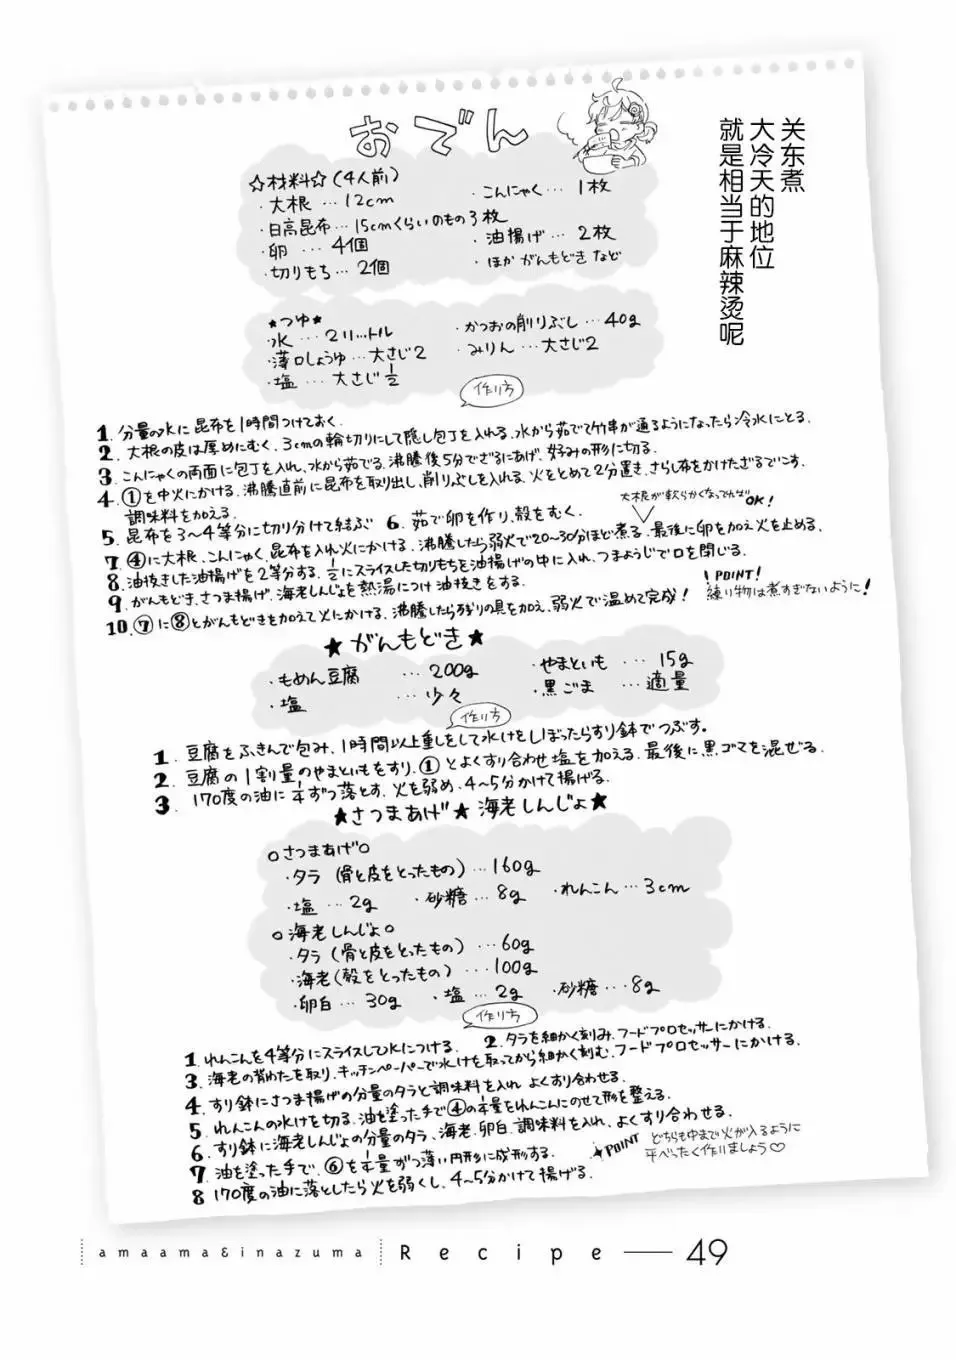 おでん
关东煮
大冷天的地位
就是相当于麻辣烫呢
☆材料☆(4人前)
・大根…12cm
・日高昆布…15cmくらいのもの3枚
・卵…4個
・切りもち…2個
・こんにゃく…1枚
・油揚げ…2枚
・ほか がんもどき など
★つゆ★
・水…2リットル
・薄口しょうゆ…大さじ2
・塩…大さじ1/2
・かつおの削りぶし…40g
・みりん…大さじ2
作り方
1. 分量の水に昆布を1時間つけておく.
2. 大根の皮は厚めにむく. 3cmの輪切りにして隠し包丁を入れる. 水から茹でて竹串が通るようになったら冷水にとる.
3. こんにゃくの両面に包丁を入れ、水から茹でる. 沸騰後5分でざるにあげ、好みの形に切る.
4. ①を中火にかける. 沸騰直前に昆布を取り出し、削りぶしを入れる. 火をとめて2分置き、さらし布をかけたざるでこす.
調味料を加える.
5. 昆布を3〜4等分に切り分けて結ぶ
6. 茹で卵を作り、殻をむく.
大根が軟らかくなってればOK!
7. ④に大根、こんにゃく、昆布を入れ火にかける. 沸騰したら弱火で20〜30分ほど煮る. 最後に卵を加え火を止める.
8. 油抜きした油揚げを2等分する. 1/2にスライスした切りもちを油揚げの中に入れ、つまようじで口を閉じる.
9. がんもどき、さつま揚げ、海老しんじょを熱湯につけ油抜きをする.
POINT!
練り物は煮すぎないように!
10. ⑦に⑧とがんもどきを加えて火にかける. 沸騰したら残りの具を加え、弱火で温めて完成!
★がんもどき★
・もめん豆腐…200g
・塩…少々
・やまといも…15g
・黒ごま…適量
作り方
1. 豆腐をふきんで包み、1時間以上重しをして水けをしぼったらすり鉢でつぶす。
2. 豆腐の1割量のやまといもをすり、①とよくすり合わせ塩を加える. 最後に黒ゴマを混ぜる.
3. 170度の油に1/4ずつ落とす. 火を弱め、4〜5分かけて揚げる.
★さつまあげ★海老しんじょ★
○さつまあげ○
・タラ(骨と皮をとったもの)…160g
・塩…2g
・砂糖…8g
・れんこん…3cm
○海老しんじょ○
・タラ(骨と皮をとったもの)…60g
・海老(殻をとったもの)…100g
・卵白…30g
・塩…2g
・砂糖…8g
作り方
1 れんこんを4等分にスライスして水につける.
2. タラを細かく刻み、フードプロセッサーにかける.
3. 海老の背わたを取り、キッチンペーパーで水けを取ってから細かく刻む. フードプロセッサーにかける.
4. すり鉢にさつま揚げの分量のタラと調味料を入れ よくすり合わせる.
5. れんこんの水けを切る. 油を塗った手で④の1/4量をれんこんにのせて形を整える.
6. すり鉢に海老しんじょの分量のタラ、海老、卵白、調味料を入れ、よくすり合わせる.
7. 油を塗った手で、⑥を1/4量ずつ薄い円形に成形する.
POINT どちらも中まで火が入るように
平べったく作りましょう♡
8 170度の油に落としたら火を弱くし、4〜5分かけて揚げる.
amaama&inazuma
Recipe — 49